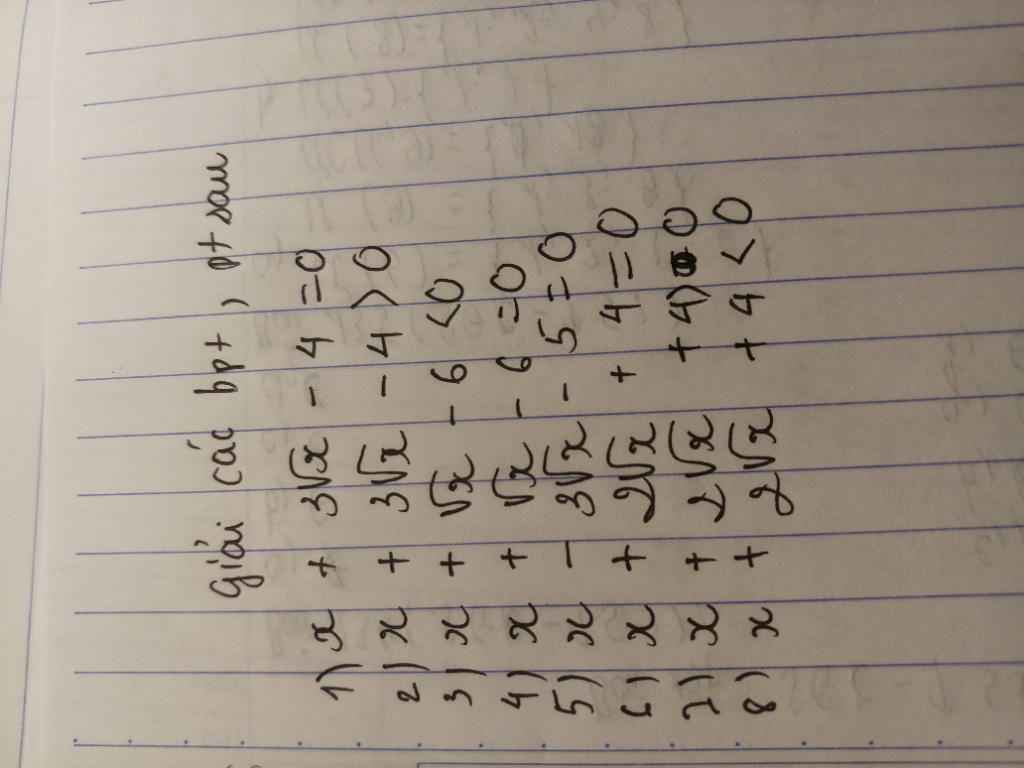 Giải các bpt, pt sau
1) x + 3√x - 4 = 0
2) x + 3√x - 4 > 0
3) x + √x - 6 < 0
4) x + √x - 6 = 0
5) x - 3√x - 5 = 0
6) x + 2√x + 4 = 0
7) x + 2√x + 4 > 0
8) x + 2√x + 4 < 0